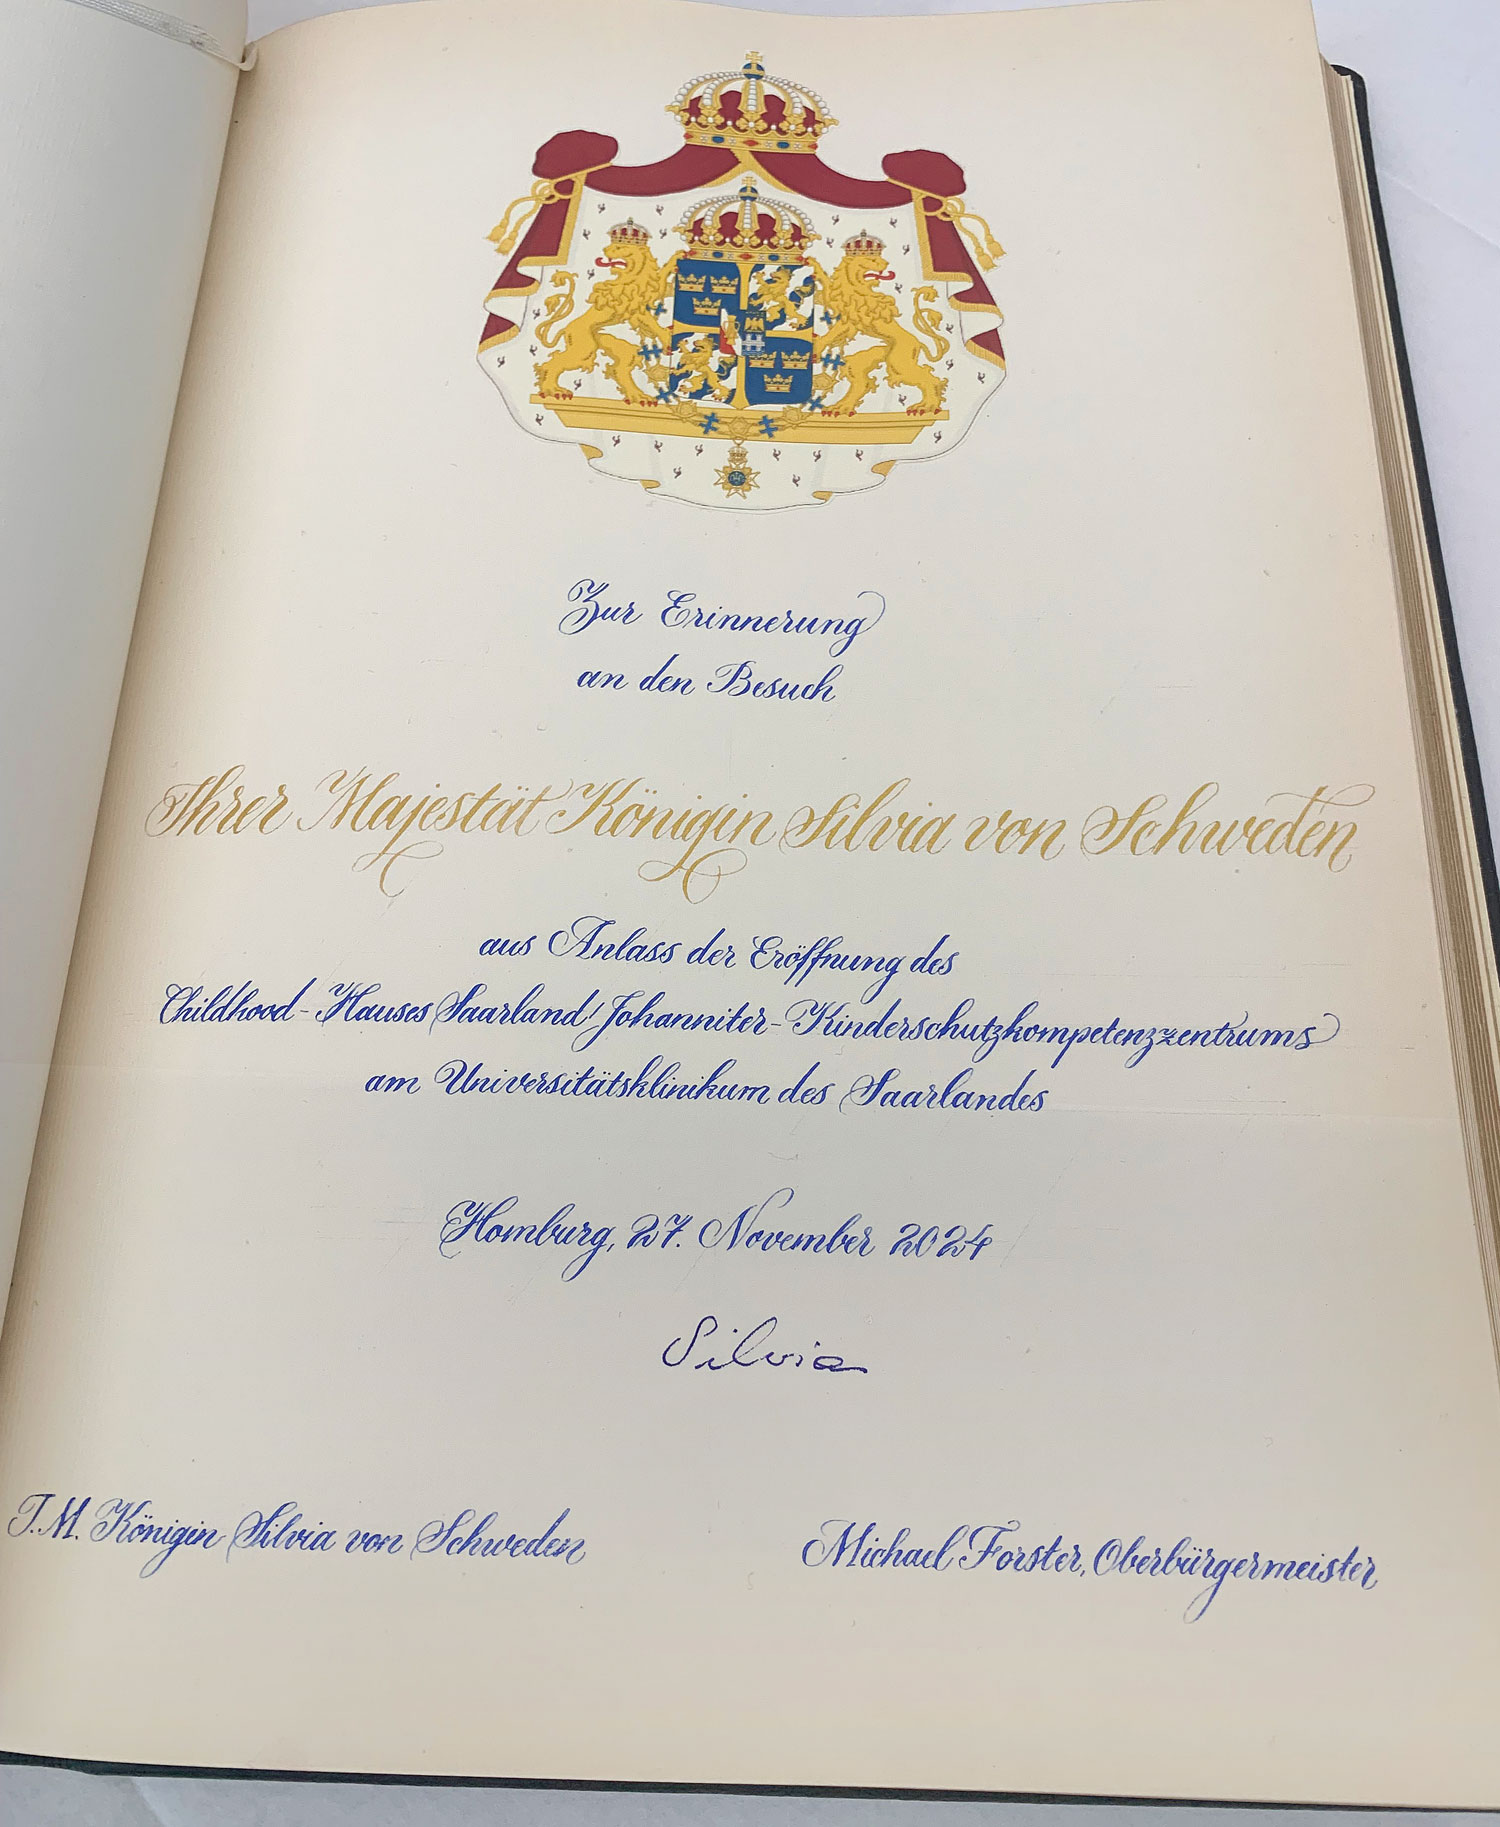 Zur Erinnerung
an den Besuch
Ihrer Majestät Königin Silvia von Schweden
aus Anlass der Eröffnung des
Childhood-Hauses Saarland/Johanniter-Kinderschutzkompetenzzentrums
am Universitätsklinikum des Saarlandes
Homburg, 27. November 2024
Silvia
I.M. Königin Silvia von Schweden
Michael Forster, Oberbürgermeister